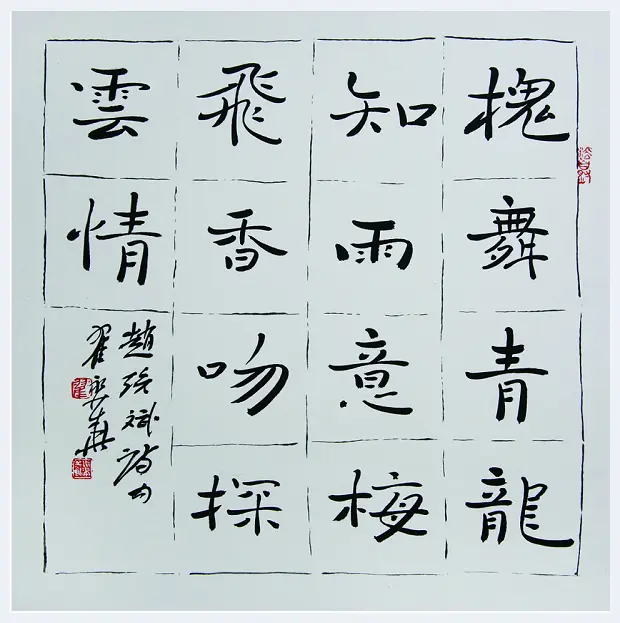 槐舞青龍
知雨意梅
飛香吻探
雲情
趙 斌詩句
翟